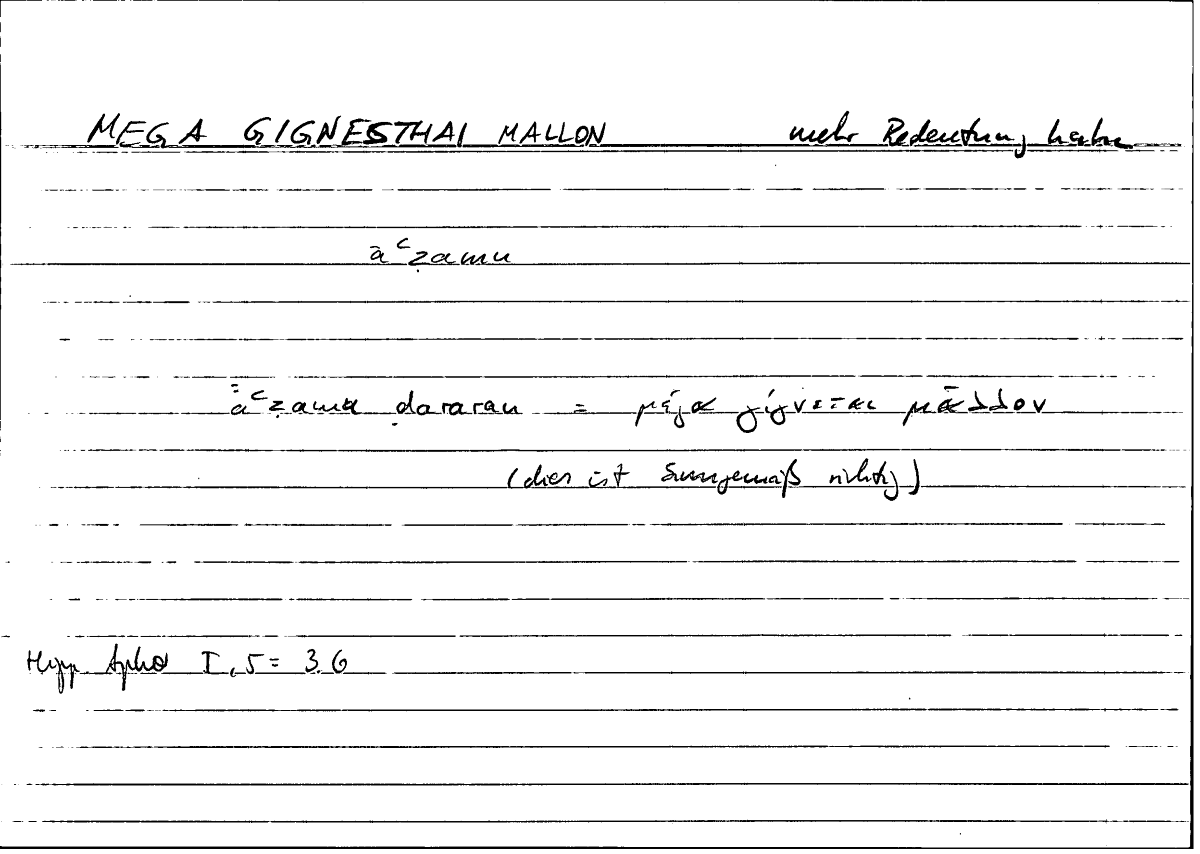 MEGA GIGNESTHAI MALLON mehr Bedeutung haben
aʿẓamu
aʿẓamu ḍararan = μέγα γίγνεται μᾶλλον
(dies ist sinngemäß richtig)
Hipp. Aphor I,5 = 3.6